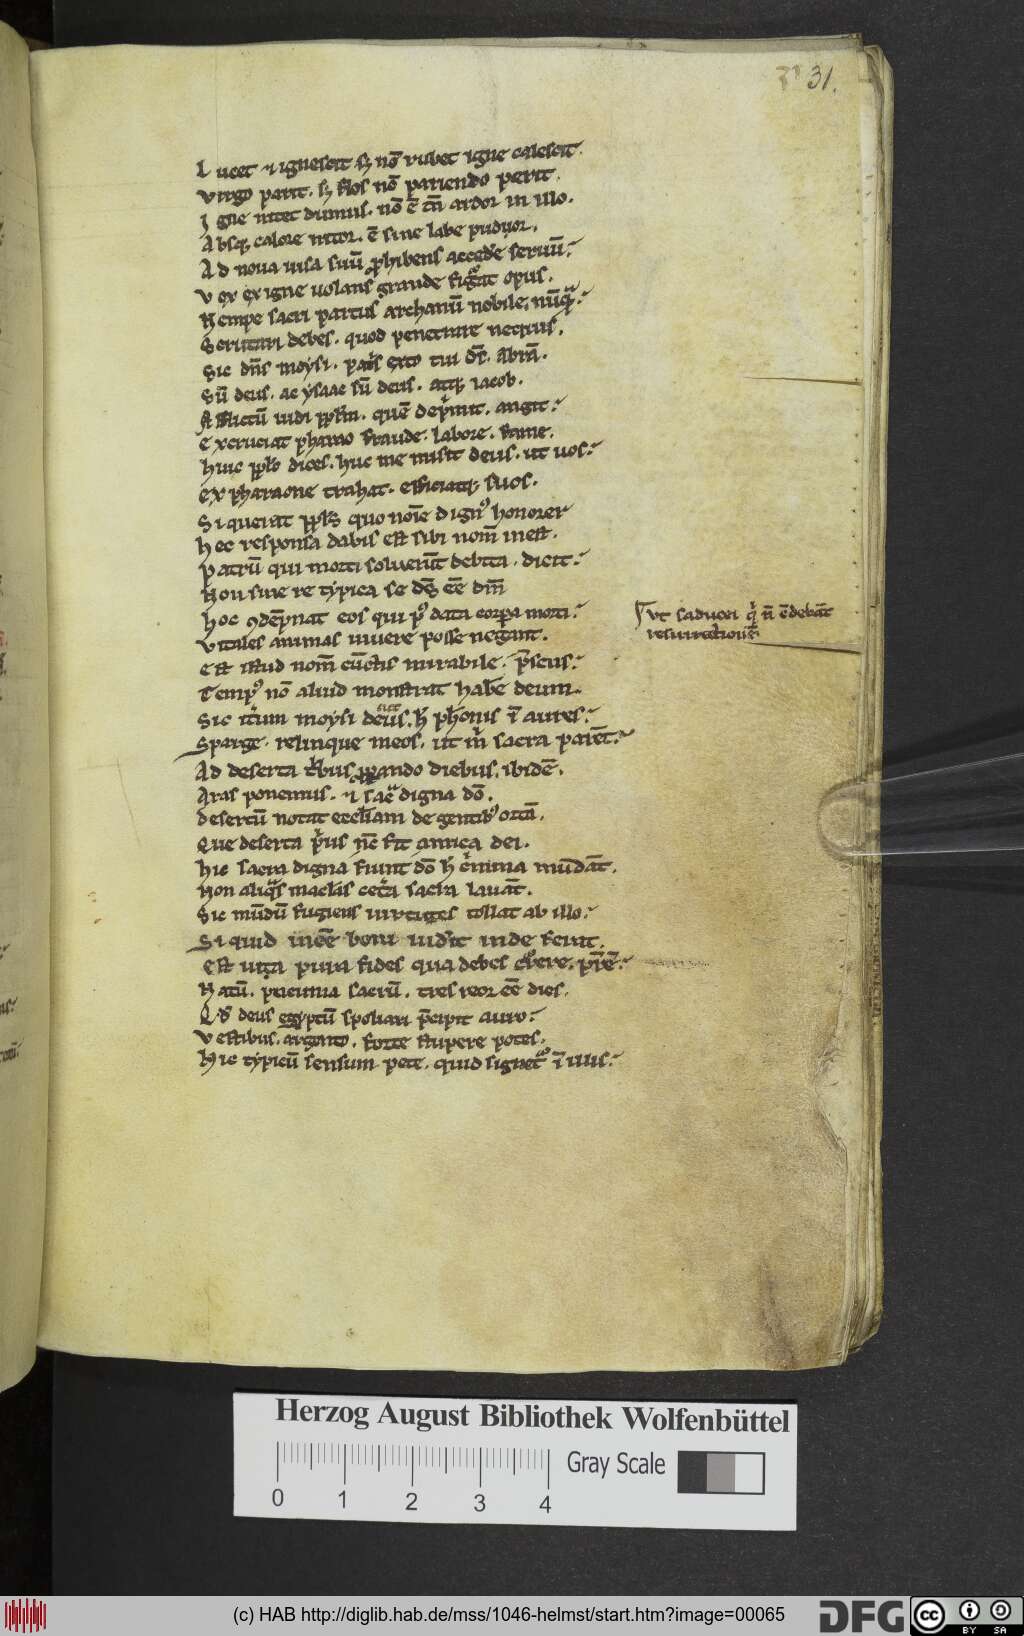 31.
Lucet ⁊ ignescit sꝫ nō rubet igne calescit.
Virgo parit. sꝫ flos nō pariendo perit.
Igne nitet dumus. nō ē tn̄ ardor in illo.
Absqꝫ calore nitor. ē sine labe pudor.
Ad noua uisa suū ꝓhibens accede seruū.
Vox ex igne uolans grande figurat opus.
Nempe sacri partus archanū nobile nūquā
Scrutari debes. quod penetrare nequis.
Sic dn̄s moysi. patris exto tui ds̄. abrā.
Sū deus. ac ysaac sū deus. atqꝫ iacob.
Afflictū uidi pplm̄. quē dep̄mit. angit.
Excruciat pharao fraude. labore. fame.
Huic pplo dices. huc me misit deus. ut uos.
Ex pharaone trahat. efficiatqꝫ suos.
Si querat ppls quo noīe dignꝰ honorer
Hec responsa dabis est sibi nom̄ in est.
Patrū qui morti soluerūt debita. dicit.
Non sine re typica se ds̄ eē dm̄
Hoc ꝯdēpnat eos qui pꝰ data corpa morti.
Vitales animas uiuere posse negant.
Est istud nom̄ cūctis mirabile. p̄sens.
Tempꝰ nō aliud monstrat habere deum.
Sic itum moysi deus. h̄ phōnis ī aures.
Sparge. relinque meos. ut m̄ sacra parēt.
Ad deserta tribus ppando diebus. ibidē.
Aras ponemus. ⁊ sacra digna dō.
Desertū notat eccliam de gentibꝰ ortā.
Que deserta pius nc̄ fit amica dei.
Hic sacra digna fiunt dō h̄ crimina mūdāt.
Non aliquas maclas cetera sacra lauāt.
Sic mūdū fugiens uirtutes tollat ab illo.
Si quid inēē boni uidit inde ferat.
Est uita pura fides qua debes credere. prēē.
Natū. pneuma sacrū. tres reor eē dies.
Qd̄ deus egyptū spoliari p̄cipit auro.
Vestibus. argento. forte stupere potes.
Hic typicū sensum pete. quid signet ī illis.
ut saducei qi n̄ c̄debāt
resurrectionis
Herzog August Bibliothek Wolfenbüttel
0 1 2 3 4
Gray Scale
(c) HAB http://diglib.hab.de/mss/1046-helmst/start.htm?image=00065
DFG
cc BY SA